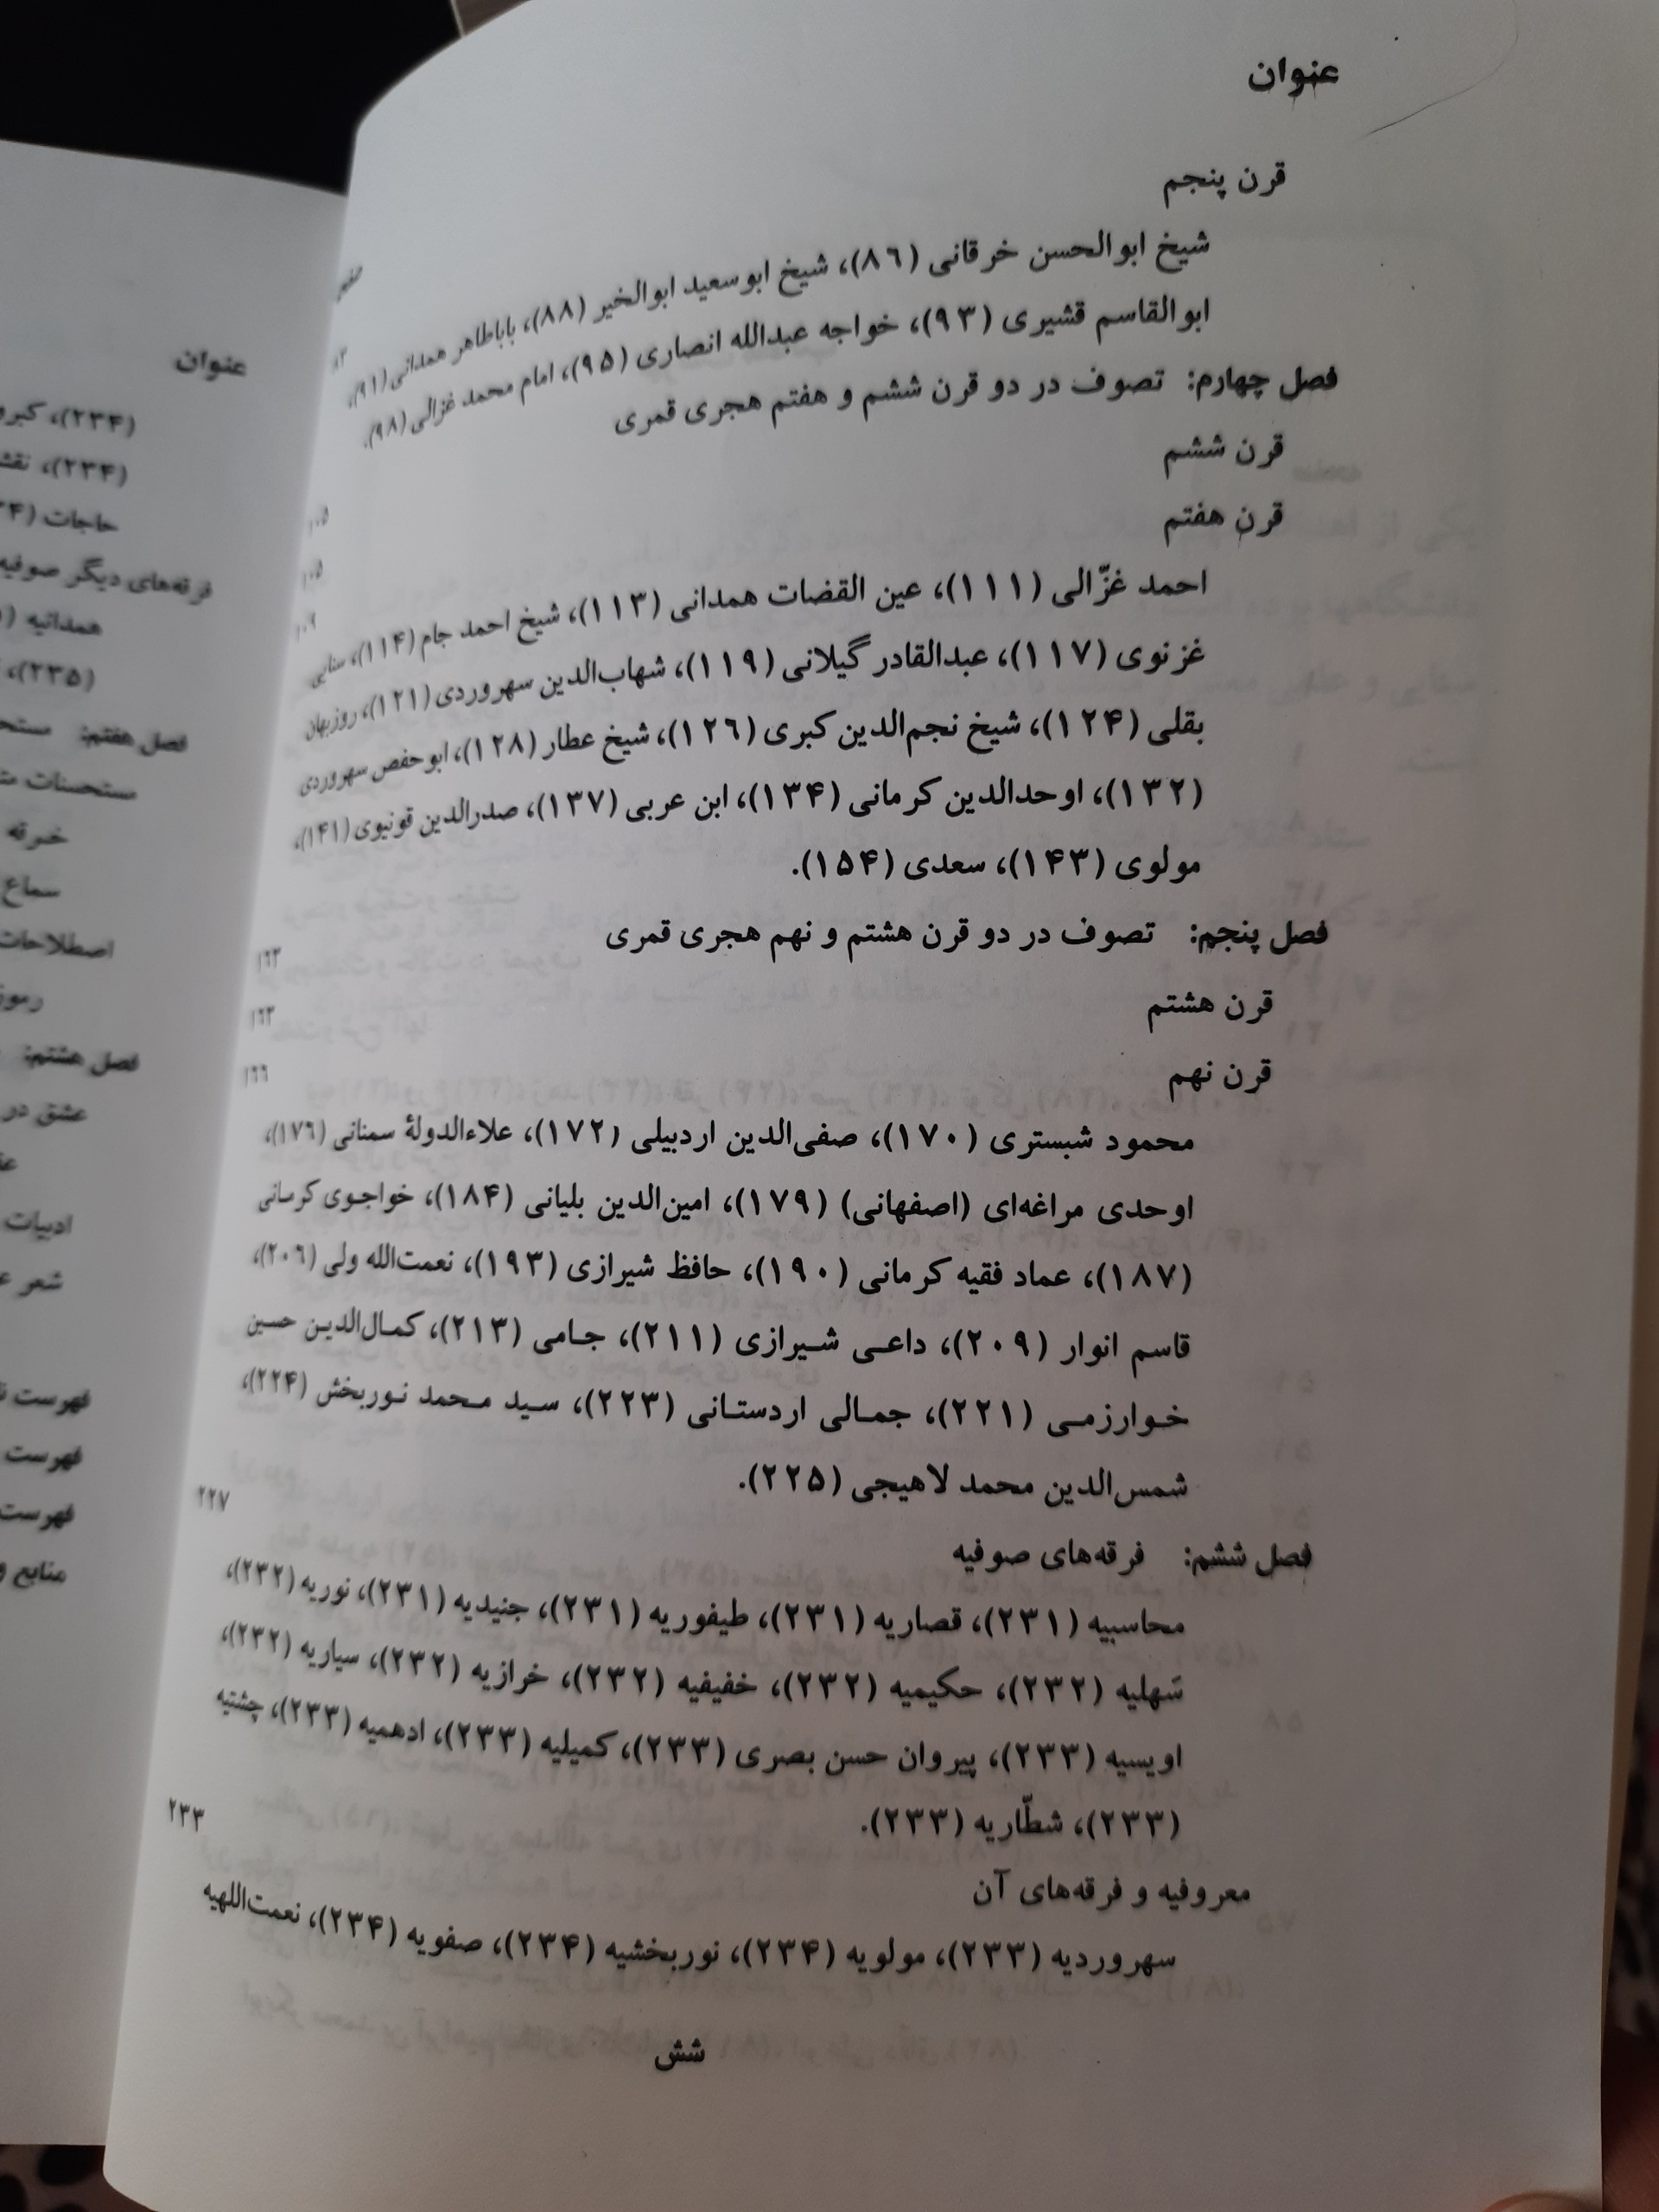 عنوان
صفحه
قرن پنجم ۸۲
شیخ ابوالحسن خرقانی (۸۶)، شیخ ابوسعید ابوالخیر (۸۸)، باباطاهر همدانی (۹۱)،
ابوالقاسم قشیری (۹۳)، خواجه عبدالله انصاری (۹۵)، امام محمد غزالی (۹۸).
فصل چهارم: تصوف در دو قرن ششم و هفتم هجری قمری ۱۰۵
قرن ششم ۱۰۵
قرن هفتم
احمد غزّالی (۱۱۱)، عین القضات همدانی (۱۱۳)، شیخ احمد جام (۱۱۴)، سنایی
غزنوی (۱۱۷)، عبدالقادر گیلانی (۱۱۹)، شهاب‌الدین سهروردی (۱۲۱)، روزبهان
بقلی (۱۲۴)، شیخ نجم‌الدین کبری (۱۲۶)، شیخ عطار (۱۲۸)، ابوحفص سهروردی
(۱۳۲)، اوحدالدین کرمانی (۱۳۴)، ابن عربی (۱۳۷)، صدرالدین قونیوی (۱۴۱)،
مولوی (۱۴۳)، سعدی (۱۵۴).
فصل پنجم: تصوف در دو قرن هشتم و نهم هجری قمری ۱۶۳
قرن هشتم ۱۶۳
قرن نهم ۱۶۶
محمود شبستری (۱۷۰)، صفی‌الدین اردبیلی (۱۷۲)، علاءالدولهٔ سمنانی (۱۷۶)،
اوحدی مراغه‌ای (اصفهانی) (۱۷۹)، امین‌الدین بلیانی (۱۸۴)، خواجوی کرمانی
(۱۸۷)، عماد فقیه کرمانی (۱۹۰)، حافظ شیرازی (۱۹۳)، نعمت‌الله ولی (۲۰۶)،
قاسم انوار (۲۰۹)، داعی شیرازی (۲۱۱)، جامی (۲۱۳)، کمال‌الدین حسین
خوارزمی (۲۲۱)، جمالی اردستانی (۲۲۳)، سید محمد نوربخش (۲۲۴)،
شمس‌الدین محمد لاهیجی (۲۲۵).
فصل ششم: فرقه‌های صوفیه ۲۲۷
محاسبیه (۲۳۱)، قصاریه (۲۳۱)، طیفوریه (۲۳۱)، جنیدیه (۲۳۱)، نوریه (۲۳۲)،
سَهلیه (۲۳۲)، حکیمیه (۲۳۲)، خفیفیه (۲۳۲)، خرازیه (۲۳۲)، سیاریه (۲۳۲)،
اویسیه (۲۳۳)، پیروان حسن بصری (۲۳۳)، کمیلیه (۲۳۳)، ادهمیه (۲۳۳)، چشتیه
(۲۳۳)، شطّاریه (۲۳۳).
معروفیه و فرقه‌های آن ۲۳۳
سهروردیه (۲۳۳)، مولویه (۲۳۴)، نوربخشیه (۲۳۴)، صفویه (۲۳۴)، نعمت‌اللهیه
شش
عنوان
(۲۳۴)،
(۲۳۴)،
حاجات
فرقه‌های دیگر صوفیه
همدانیه
(۲۳۵)،
فصل هفتم:
مستحسنات
خرقه
سماع
اصطلاحات
فصل هشتم:
عشق در
ادبیات
شعر
فهرست
فهرست
فهرست
منابع و